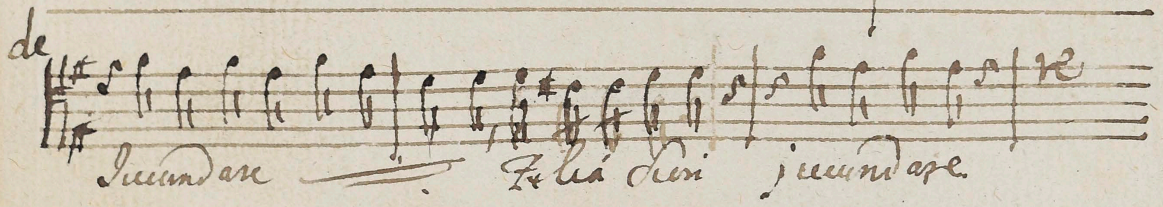 de
re
Jucundare Filia Sion jucundare.